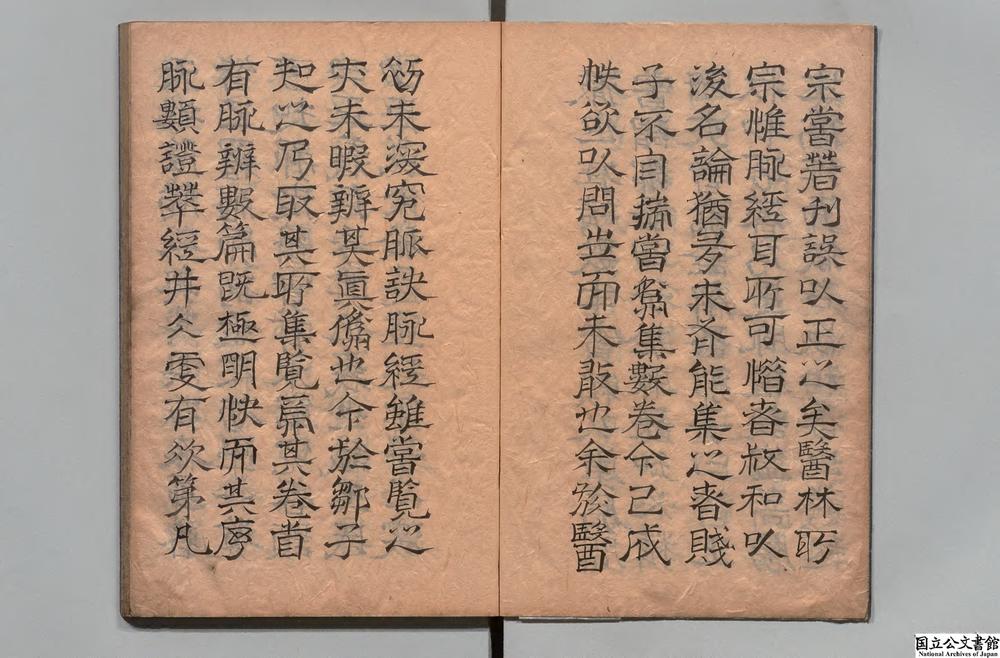 宗嘗著刊誤以正之矣醫林所
宗惟脉經耳所可惜者叔和以
後名論猶多未有能集之者賤
子不自揣嘗爲集數卷今已成
帙欲以問世而未敢也余於醫
初未深究脈訣脉經雖嘗覽之
亦未暇辨其眞僞也今於鄒子
知之乃取其所集覽焉其卷首
有脉辨數篇既極明快而其序
脉類證萃經井々更有次第凡
国立公文書館
National Archives of Japan